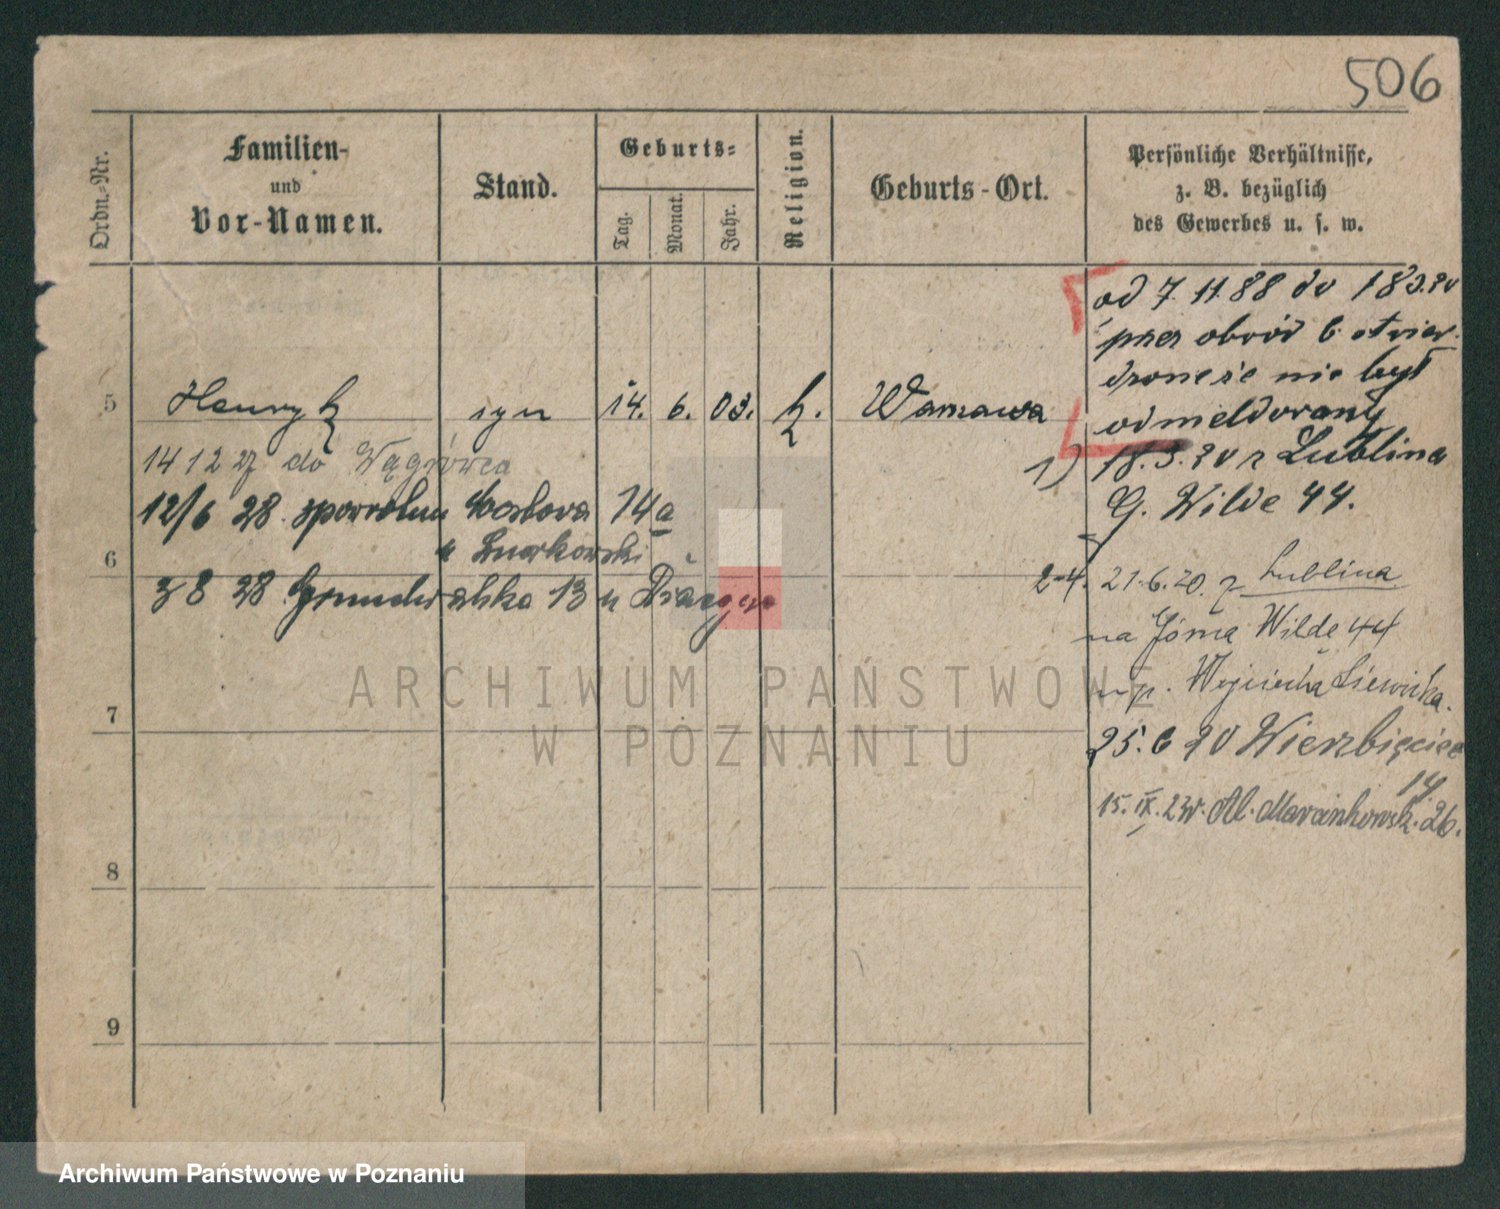 506
Ordn.-Nr.
Familien-
und
Vor-Namen.
Stand.
Geburts-
Tag.
Monat.
Jahr.
Religion.
Geburts-Ort.
Persönliche Verhältnisse,
z. B. bezüglich
des Gewerbes u. s. w.
od 7. 11. 88 do 18 3. 20
przez obwód 6 stwier-
dzone że nie był
odmeldowany
5 Henryk syn 14. 6. 03. k. Warszawa
14 12 27 do Wągrówca
1) 18. 3. 20 z Lublina
G. Wilde 44.
12/6 28. spowrotem Mostowa 14a
u
6
3 8 28 Grunwaldzka 13 u
2-4. 21. 6. 20. z Lublina
na Górną Wilde 44
Wojciecha
7
25. 6 20 Wierzbięcice
14
15. IX. 23r. Al. Marcinkowsk. 26.
8
9
ARCHIWUM PAŃSTWOWE
W POZNANIU
Archiwum Państwowe w Poznaniu